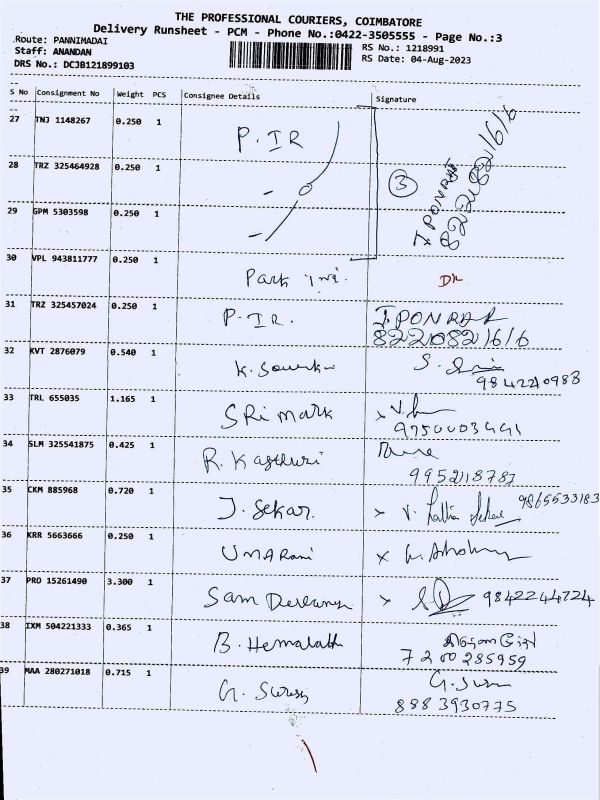 THE PROFESSIONAL COURIERS, COIMBATORE
Delivery Runsheet - PCM - Phone No.:0422-3505555 - Page No.:3
Route: PANNIMADAI
Staff: ANANDAN
DRS No.: DCJB121899103
RS No.: 1218991
RS Date: 04-Aug-2023
S No Consignment No Weight PCS Consignee Details Signature
27 TNJ 1148267 0.250 1 P. IR
28 TRZ 325464928 0.250 1 3
I PONRAJ
8220821616
29 GPM 5303598 0.250 1
30 VPL 943811777 0.250 1 Park
31 TRZ 325457024 0.250 1 P. IR. I. PONRAJ
8220821616
32 KVT 2876079 0.540 1 K.
9842210983
33 TRL 655035 1.165 1 SRi mark
34 SLM 325541875 0.425 1 R. Kasthuri
35 CKM 885968 0.720 1 J. Sekar. 9865533183
36 KRR 5663666 0.250 1 UMA Rani
37 PRO 15261490 3.300 1 Sam 9842244724
38 IXM 504221333 0.365 1 B. Hemalath
7200285959
39 MAA 280271018 0.715 1 G. Suresh
8883930775